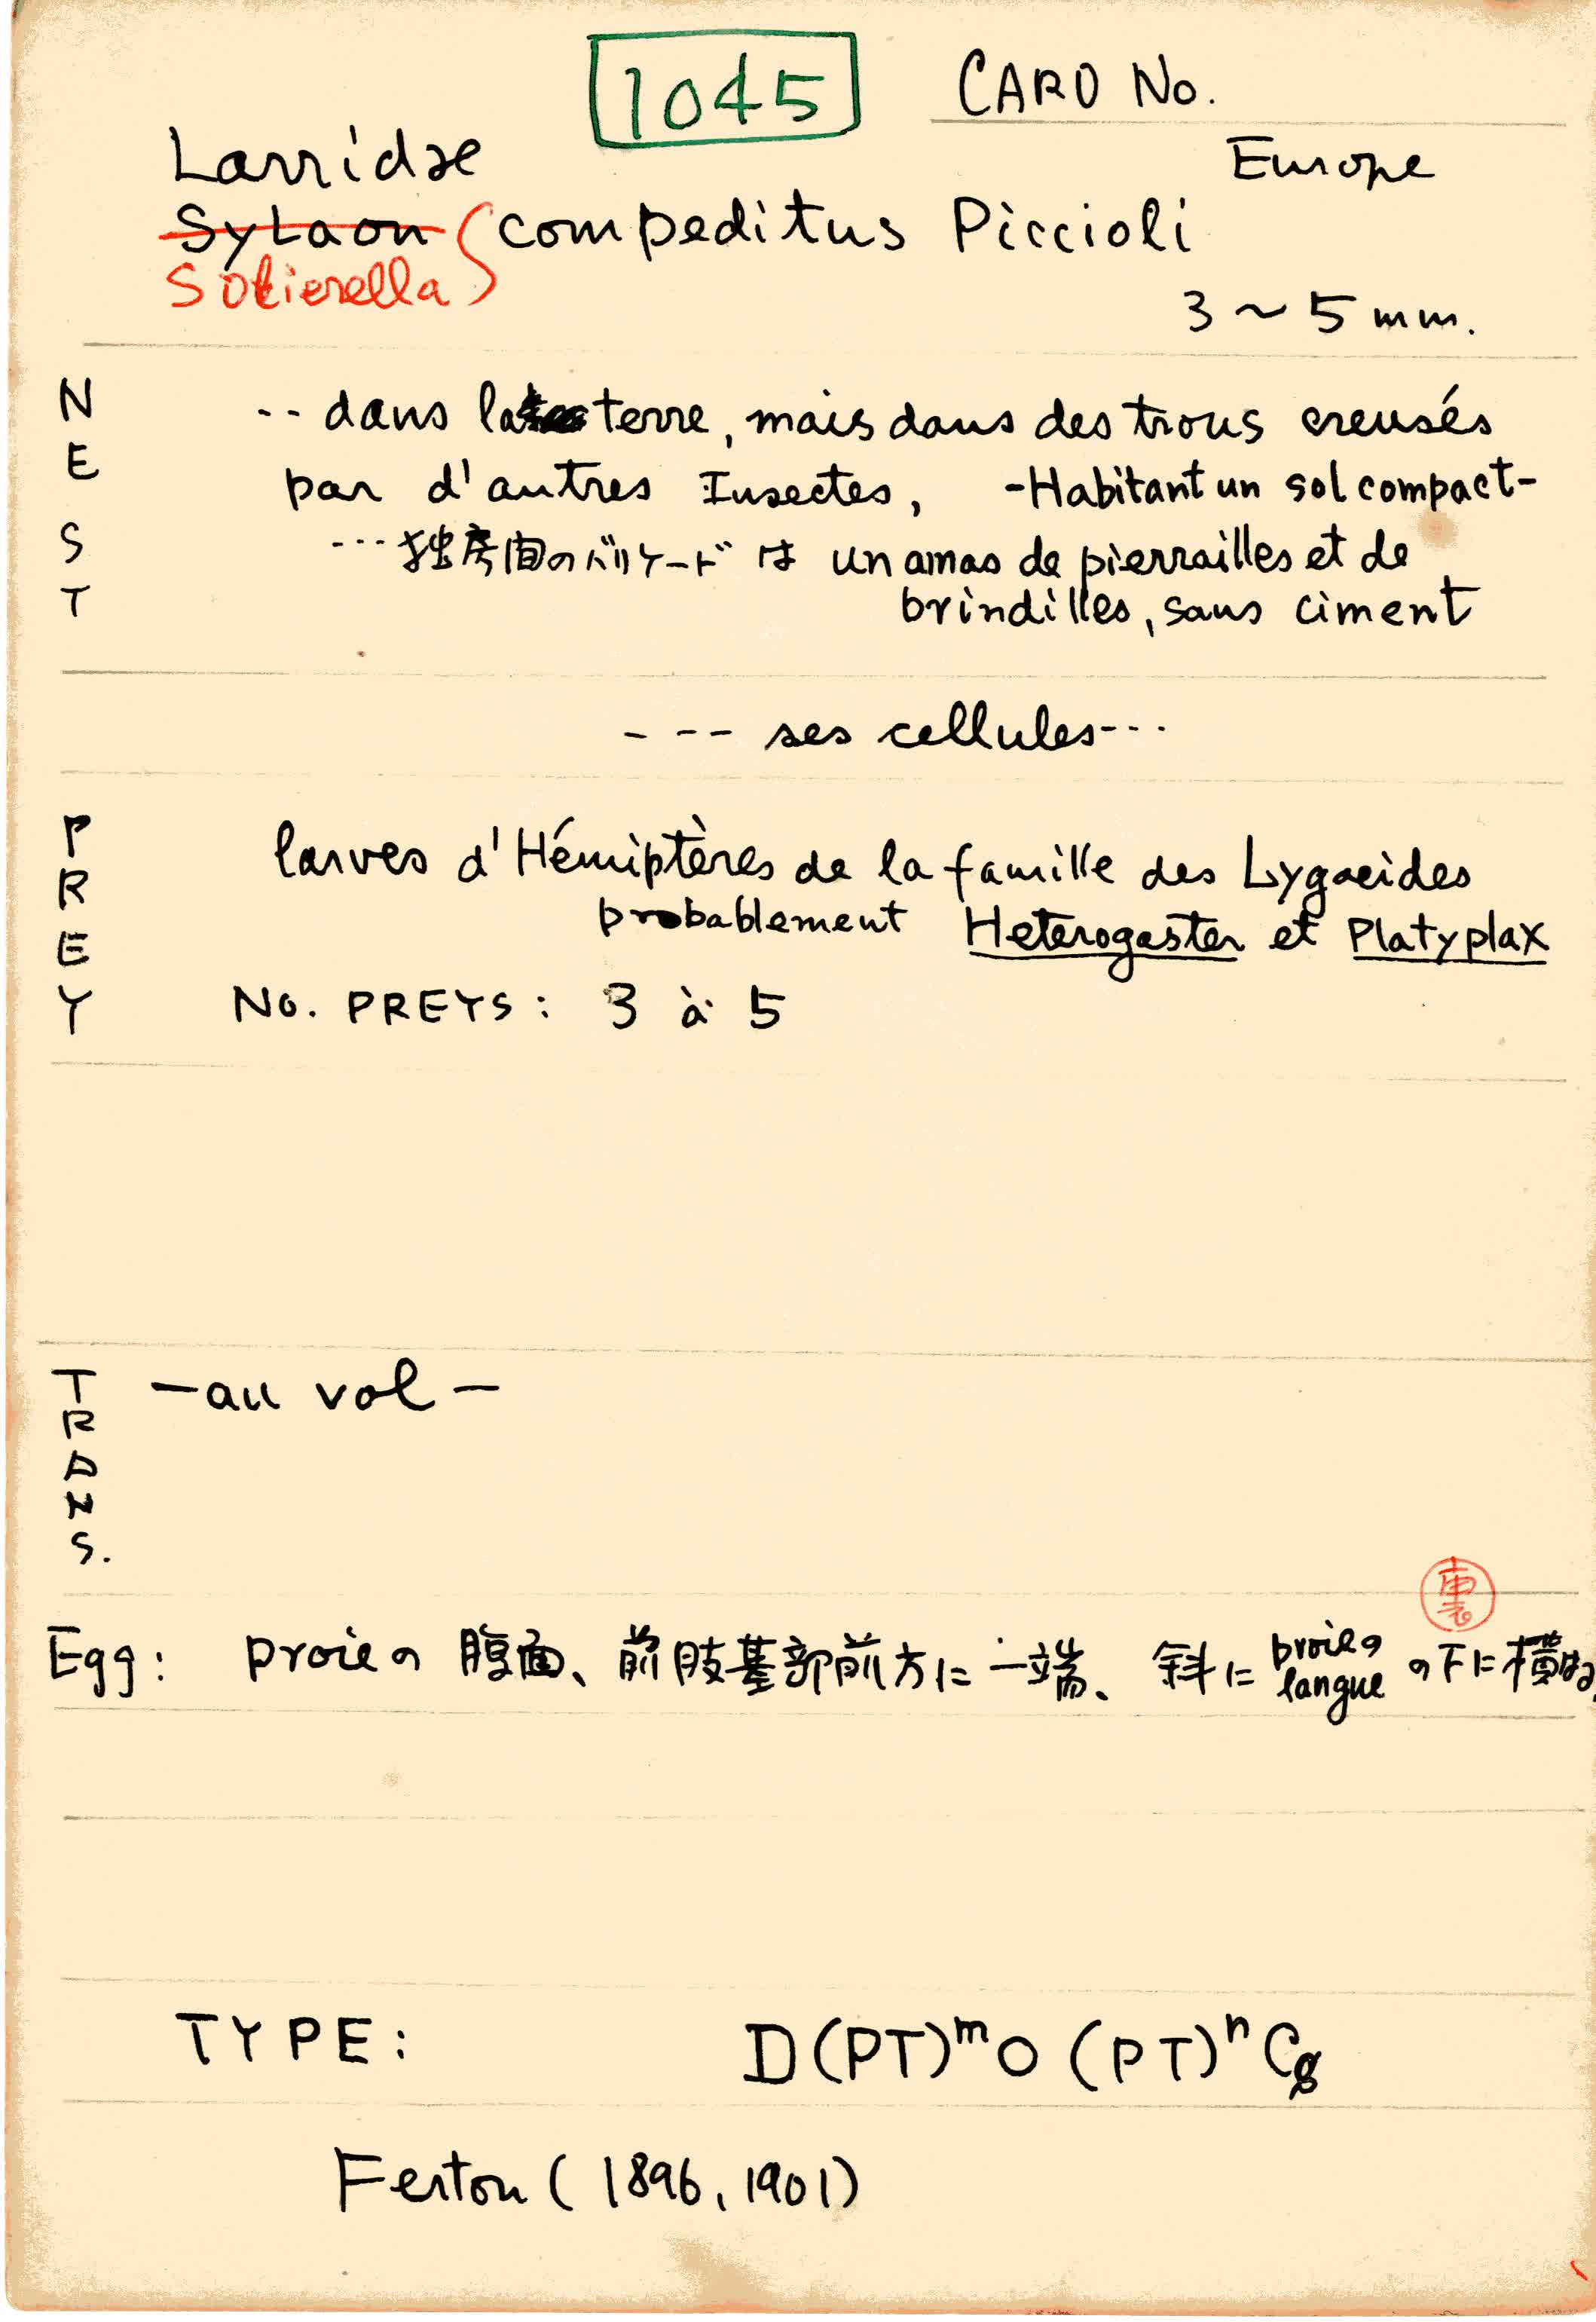 1045
CARD No.
Larridae
Europe
Sylaon compeditus Piccioli
Solierella
3 ~ 5 mm.
NEST
-- dans la terre, mais dans des trous creusés
par d'autres Insectes, -Habitant un sol compact-
--- 独房間のバリケードは un amas de pierrailles et de
brindilles, sans ciment
- -- ses cellules---
PREY
larves d'Hémiptères de la famille des Lygaeides
probablement Heterogaster et Platyplax
No. PREYS: 3 à 5
TRANS.
—au vol—
裏
Egg: proieの腹面、前肢基部前方に一端、斜に proieの langue の下に横める
TYPE: D(PT)ᵐO(PT)ⁿCg
Ferton (1896, 1901)